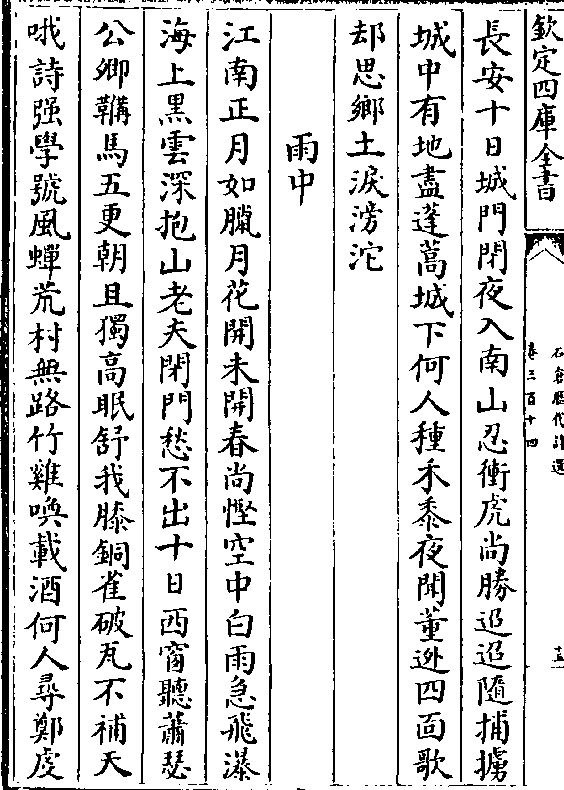 欽定四庫全書
石倉歴代詩選
卷三百十四
長安十日城門閉夜入南山忍衝虎尚勝迢迢隨捕擄
城中有地盡蓬蒿城下何人種禾黍夜聞董逃四面歌
却思鄉土淚滂沱
雨中
江南正月如臘月花開未開春尚慳空中白雨急飛瀑
海上黑雲深抱山老夫閉門愁不出十日西窗聽蕭瑟
公卿鞲馬五更朝且獨高眠舒我膝銅雀破瓦不補天
哦詩强學號風蟬荒村無路竹雞喚載酒何人尋鄭虔